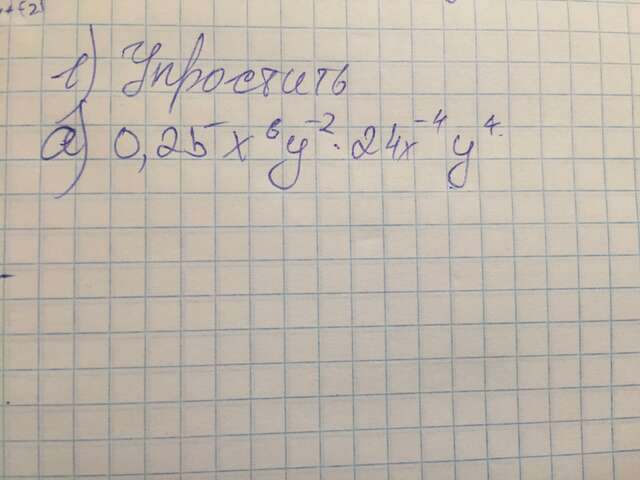 1) Упростить
а) 0,25x⁶y⁻²·24x⁻⁴y⁴.